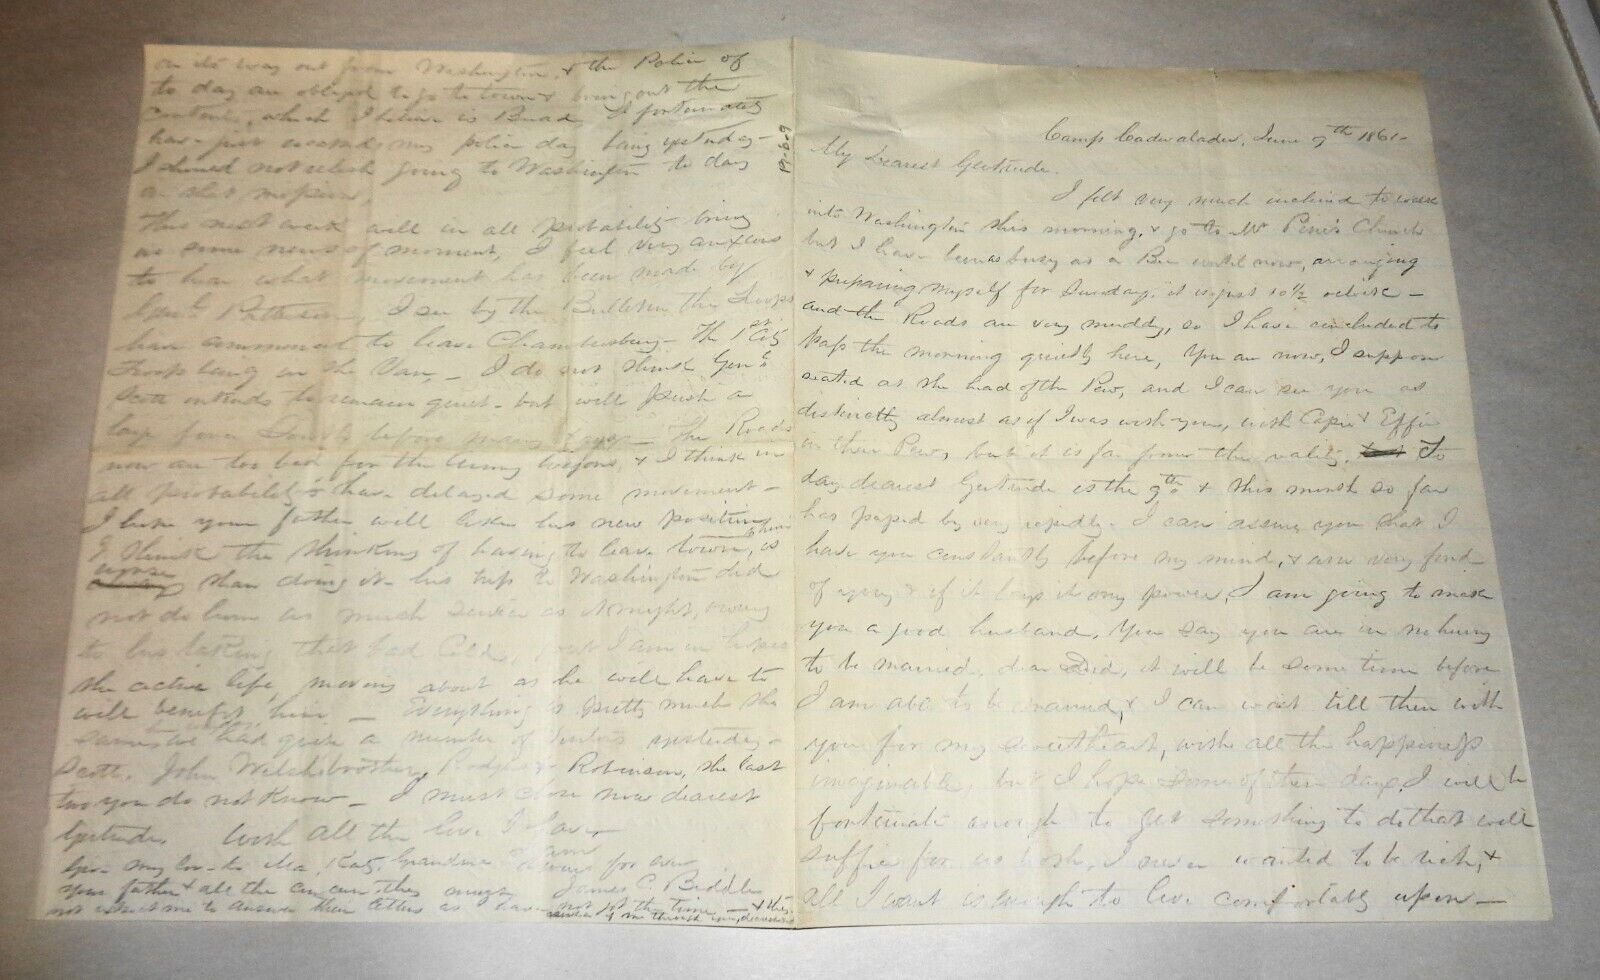 Camp Cadwalader, June 9th 1861-
My Dearest Gertrude.
I felt very much inclined to
into Washington this morning, & go to Mr Church
but I have been as busy as a Bee until now, arranging
& preparing myself for Sunday, it is just 10½ oclock -
and the Roads are very muddy, so I have concluded to
pass the morning quietly here, You are now, I suppose
seated at the head of the Pew, and I can see you as
distinctly almost as if I was with you, with & Effie
in their Pew, but it is far from the reality. To
day dearest Gertrude is the 9th & this month so far
has passed by very rapidly. I can assure you that I
have you constantly before my mind, & am very fond
of you, & if it lays in my power, I am going to make
you a good husband. You say you are in no hurry
to be married, dear it will be some time before
I am able to be married, & I can wait till then with
you for my sweetheart, with all the happiness
imaginable, but I hope some of these days, I will be
fortunate enough to get something to do that will
suffice for us both, I never wanted to be rich, &
all I want is enough to live comfortably upon -
on its way out from Washington, & the Police of
to day are obliged to go to town & bring out the
which I believe is Bread, I fortunately
have just escaped my police day being yesterday -
I should not relish going to Washington to day
on that mission,
This next week will in all probability bring
us some news of moment, I feel very anxious
to hear what movement has been made by
Genl Patterson, I see by the Bulletin the Troops
have commenced to leave Chambersburg - The 1st City
Troop being in the Van, - I do not think Genl
Scott intends to remain quiet - but will push a
large force South before many days - The Roads
now are too bad for the Army Wagons, & I think in
all probability have delayed some movement -
I hope your father will like his new position
I think the thinking of having to leave town, is
worse than doing it - his trip to Washington did
not do him as much service as it might, owing
to his taking that bad Cold, but I am in hopes
the active life, moving about as he will have to
will benefit him - Everything is pretty much the
same we had quite a number of visitors yesterday -
Scott, John Welsh's brother, Rodgers & Robinson, the last
two you do not know - I must close now dearest
Gertrude. With all the love I have
I am
Give my love to Ma, Katy, Grandma yours for ever
your father & all the they must James C. Biddle
not expect me to answer their letters as I have not got the time - & this
19-6-9